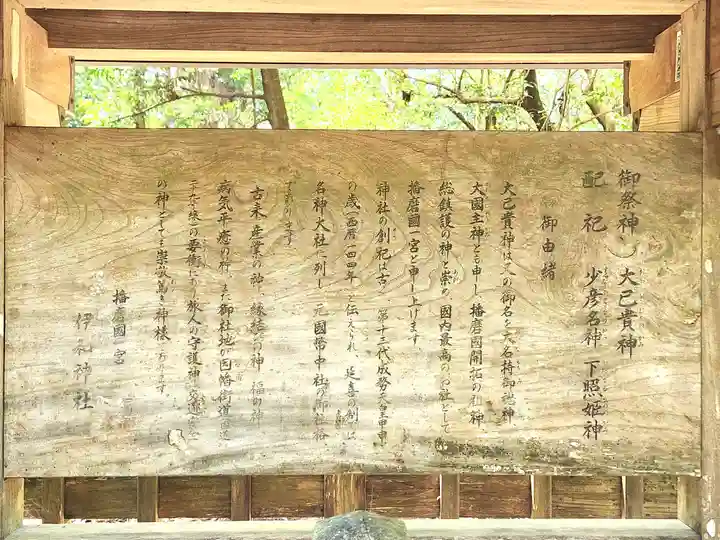 御祭神 大己貴神
配祀 少彦名神 下照姫神
御由緒
大己貴神は又の御名を大名持御魂神
大国主神とも申し、播磨國開拓の祖神、
総鎮護の神と崇め、国内最高のお社として
播磨國一宮と申し上げます。
神社の創祀は古く第十三代成務天皇甲申
の歳(西暦一四四年)と伝えられ、延喜の制には
名神大社に列し、元國幣中社の御社格
であります。
古来、産業の神 縁結びの神 福の神
病気平癒の神、また御社地が因幡街道
の要衝にあり旅人の守護神 交通安全
の神としても崇敬篤き神様であります
播磨國一宮
伊和神社